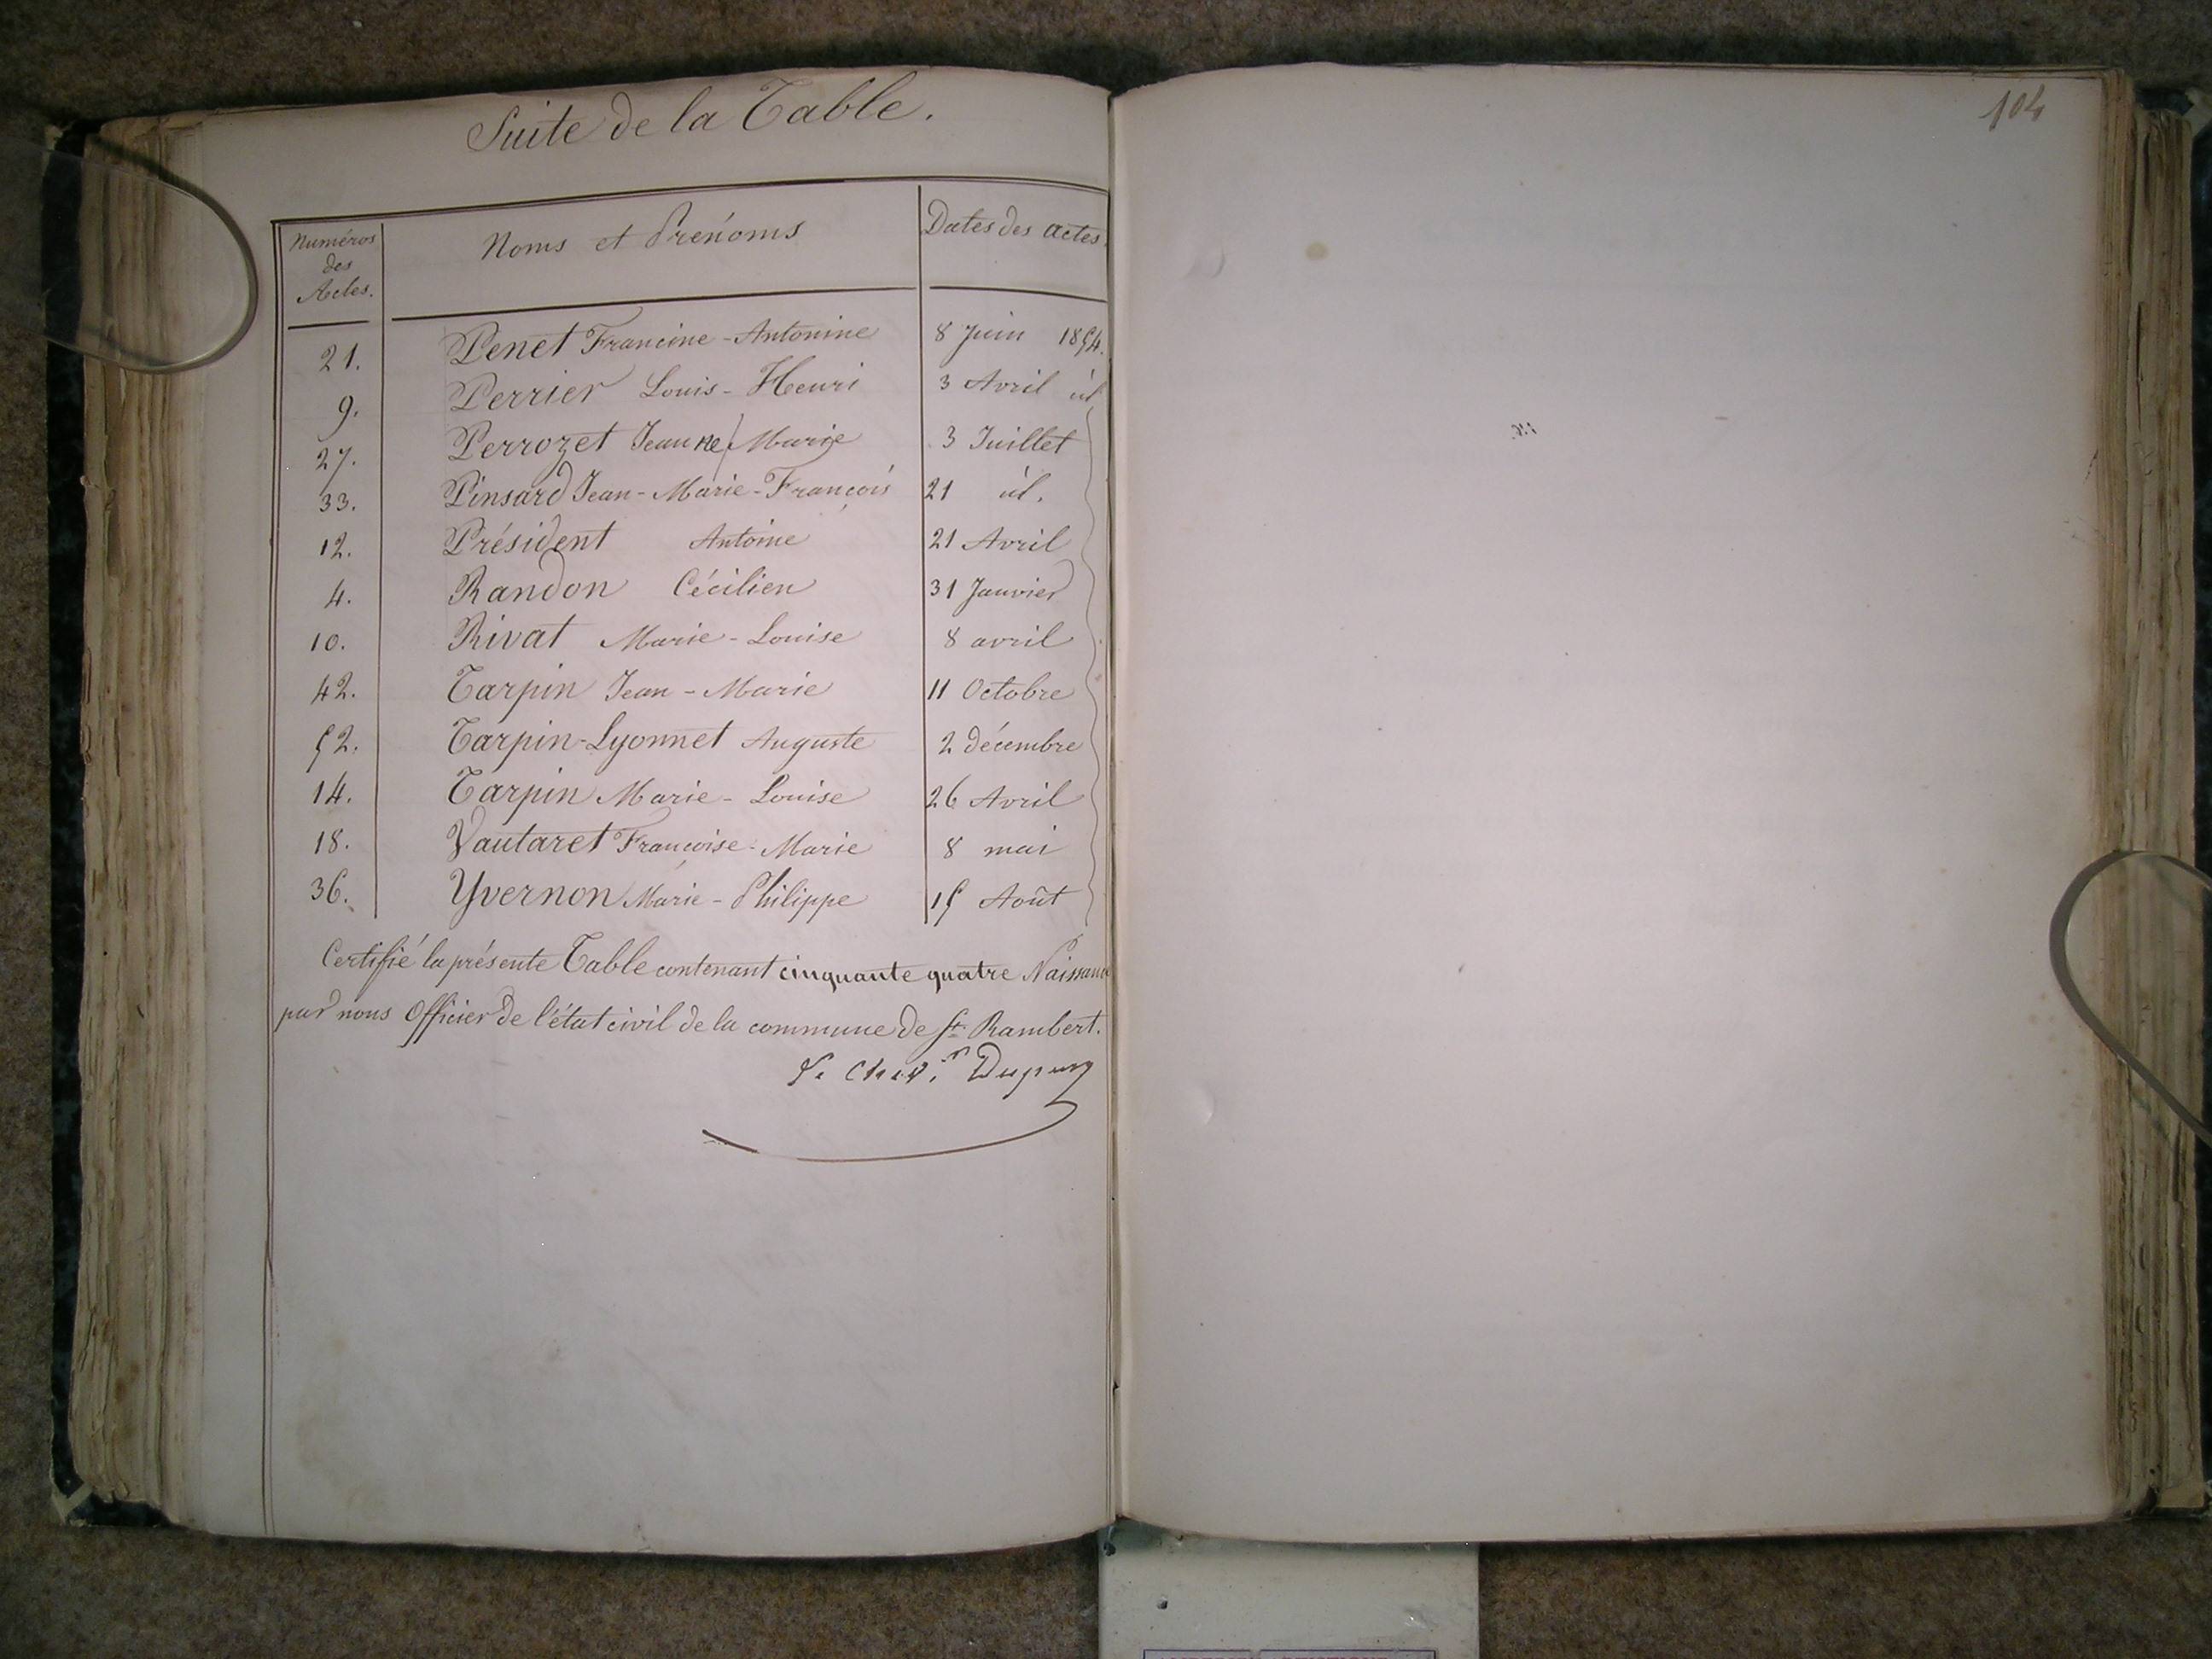 Suite de la Table.
Numéros des Actes. Noms et Prénoms Dates des actes.
21. Penet Francine-Antonine 8 Juin 1854.
9. Perrier Louis-Henri 3 Avril id
27. Perrozet Jeanne Marie 3 Juillet
33. Pinsard Jean-Marie-François 21 id.
12. Président Antoine 21 Avril
4. Randon Cécilien 31 Janvier
10. Rivat Marie-Louise 8 avril
42. Tarpin Jean-Marie 11 Octobre
52. Tarpin-Lyonnet Auguste 2 décembre
14. Tarpin Marie-Louise 26 Avril
18. Vautaret Françoise-Marie 8 mai
36. Yvernon Marie-Philippe 15 Août
Certifié la présente Table contenant cinquante quatre
par nous Officier de l'état civil de la commune de St Rambert.
Dupuy
104